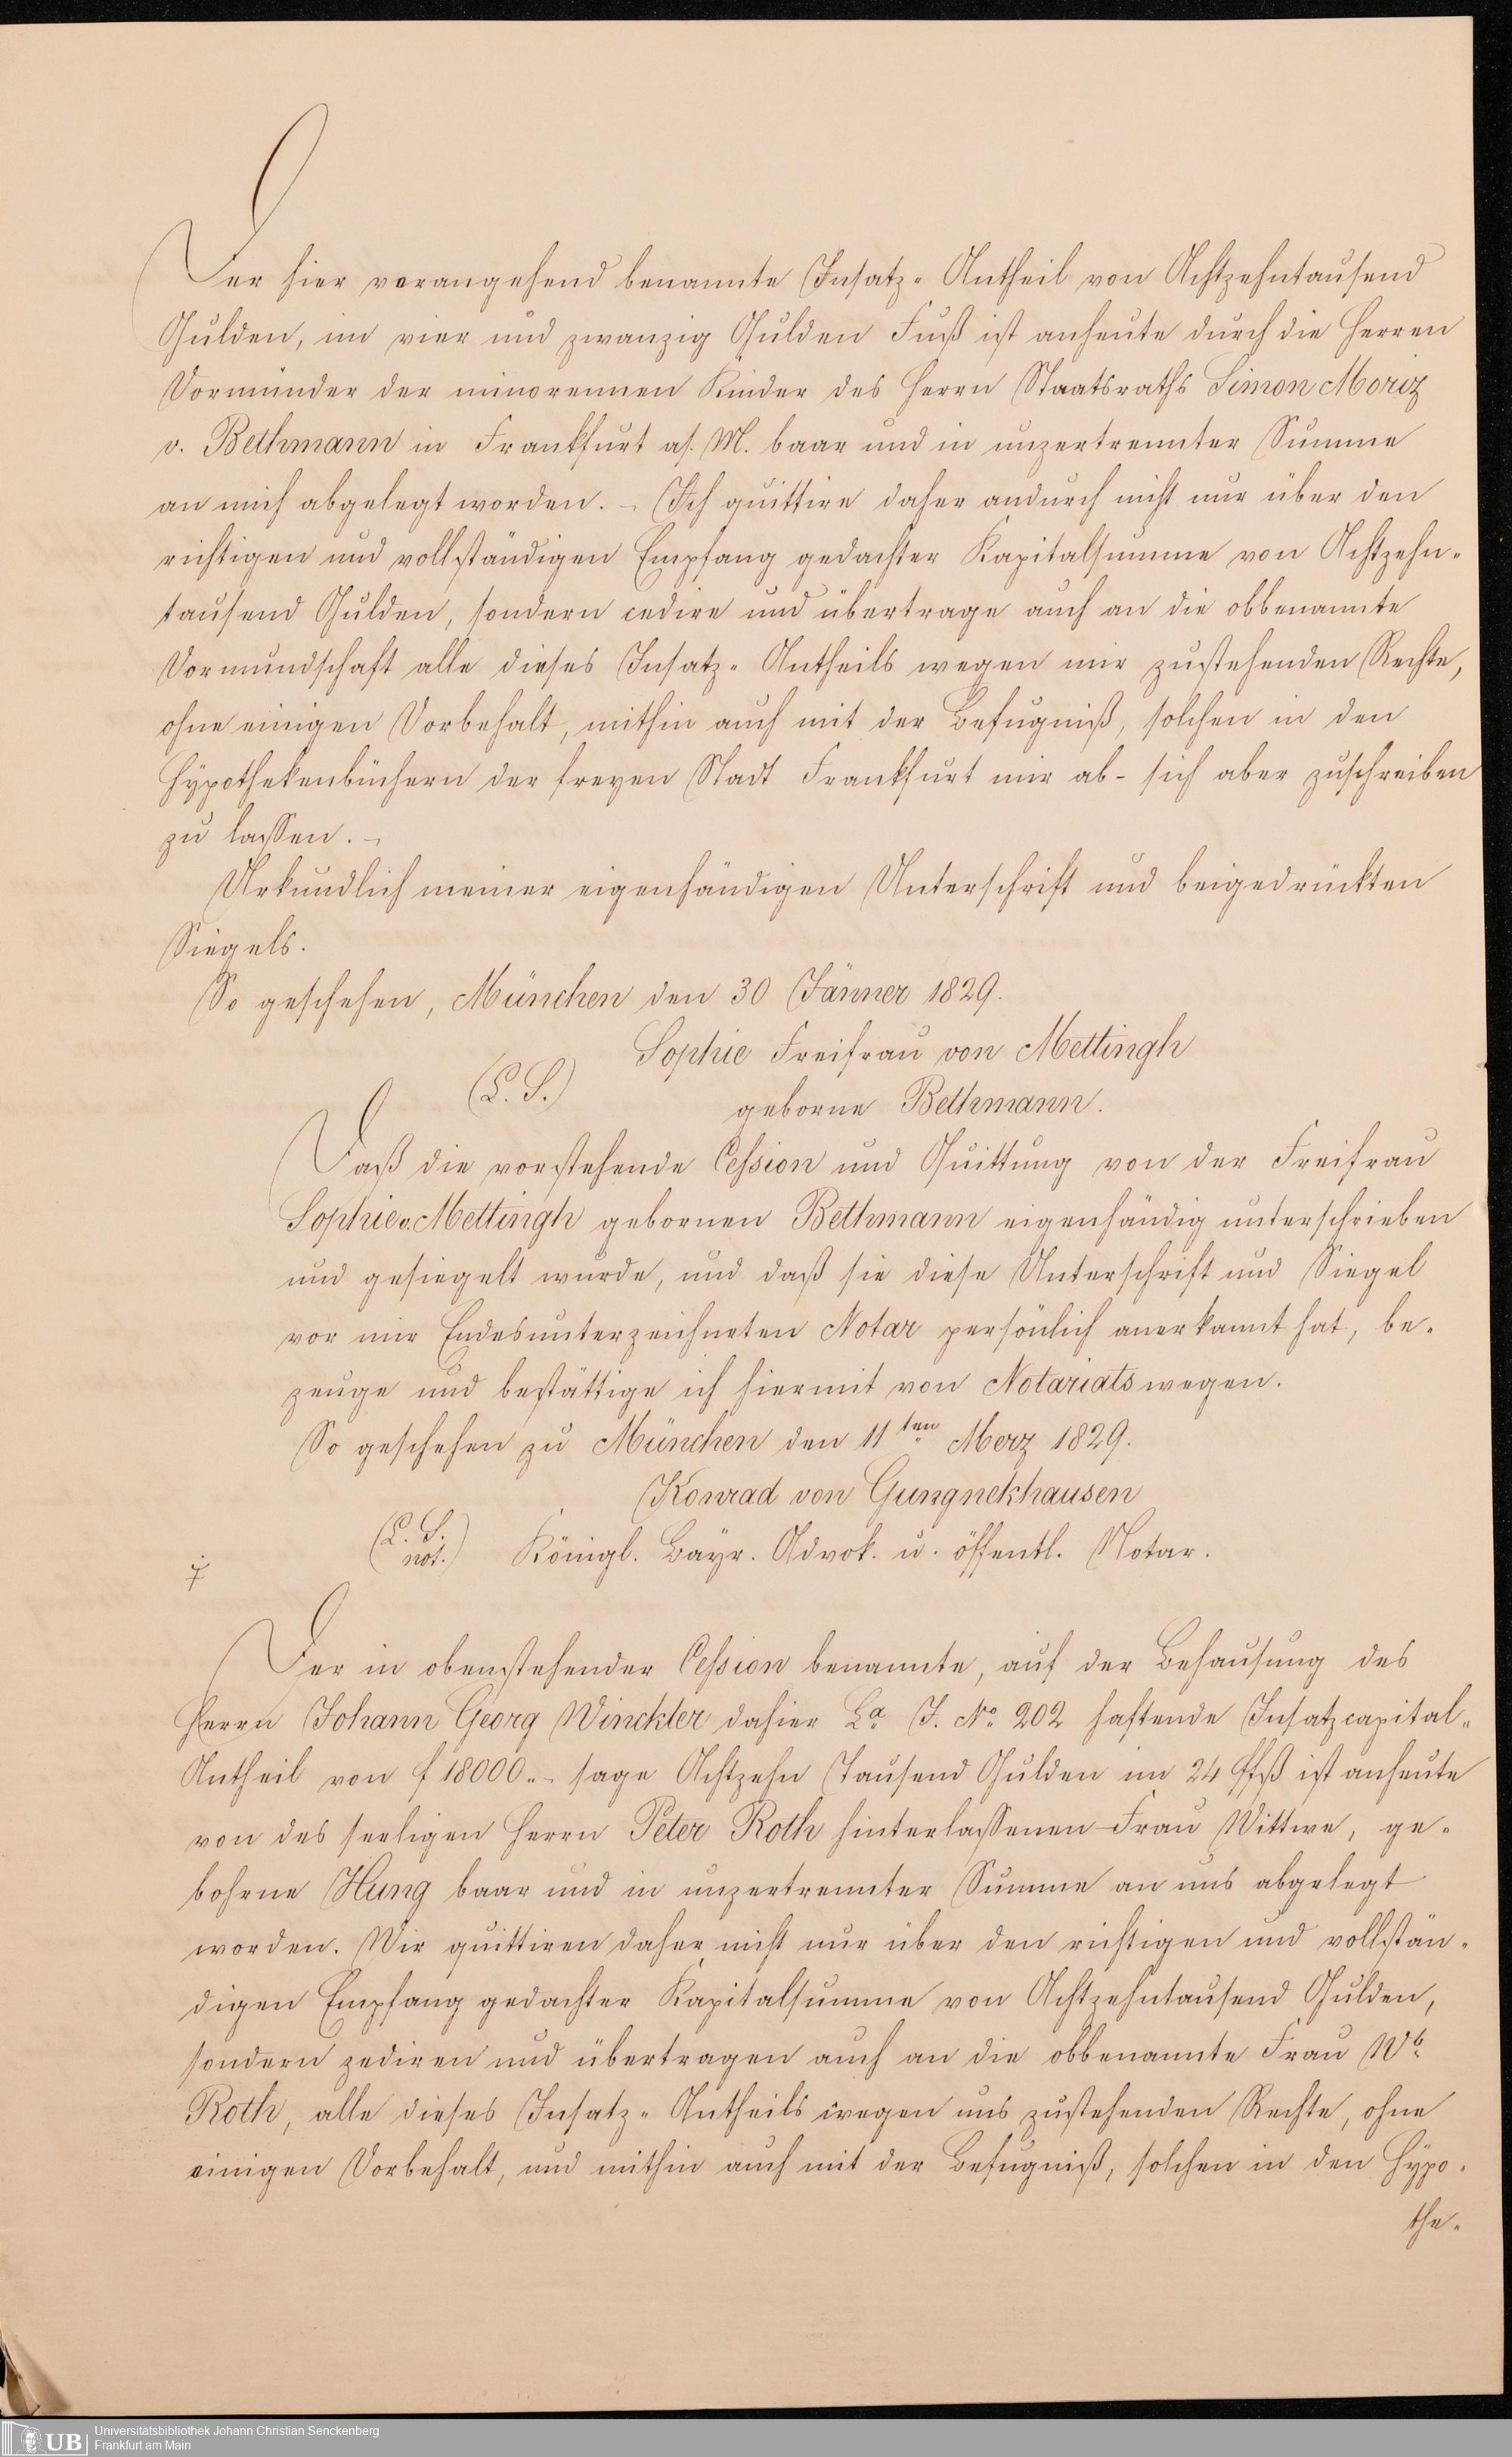 Der hier vorangehend benannte Insatz-Antheil von Achtzehntausend
Gulden, im vier und zwanzig Gulden Fuß ist anheute durch die Herren
Vormünder der minorennen Kinder des Herrn Staatsraths Simon Moriz
v. Bethmann in Frankfurt a/. M. baar und in unzertrennter Summe
an mich abgelegt worden. – Ich quittire daher andurch nicht nur über den
richtigen und vollständigen Empfang gedachter Kapitalsumme von Achtzehn-
tausend Gulden, sondern cedire und übertrage auch an die obbenannte
Vormundschaft alle dieses Insatz-Antheils wegen mir zustehenden Rechte,
ohne einigen Vorbehalt, mithin auch mit der Befugniß, solchen in den
Hÿpothekenbüchern der freyen Stadt Frankfurt mir ab- sich aber zuschreiben
zu lassen. –
Urkundlich meiner eigenhändigen Unterschrift und beigedrückten
Siegels.
So geschehen, München den 30 Jänner 1829.
Sophie Freifrau von Mettingh
(L. S.)
geborne Bethmann.
Daß die vorstehende Cession und Quittung von der Freifrau
Sophie v. Mettingh gebornen Bethmann eigenhändig unterschrieben
und gesiegelt wurde, und daß sie diese Unterschrift und Siegel
vor mir Endesunterzeichneten Notar persönlich anerkannt hat, be-
zeuge und bestättige ich hiermit von Notariatswegen.
So geschehen zu München den 11ten Merz 1829.
Konrad von Gungnekhausen
(L. S. not.) Königl. Bayr. Advok. u. öffentl. Notar.
Der in obenstehender Cession benannte, auf der Behausung des
Herrn Johann Georg Winckler dahier La J. No 202 haftende Insatzcapital-
Antheil von f 18000.- sage Achtzehn Tausend Gulden im 24 ffß ist anheute
von des seeligen Herrn Peter Roth hinterlassenen Frau Wittwe, ge-
bohrne Hung baar und in unzertrennter Summe an uns abgelegt
worden. Wir quittiren daher nicht nur über den richtigen und vollstän-
digen Empfang gedachter Kapitalsumme von Achtzehntausend Gulden,
sondern zediren und übertragen auch an die obbenannte Frau Wb
Roth, alle dieses Insatz-Antheils wegen uns zustehenden Rechte, ohne
einigen Vorbehalt, und mithin auch mit der Befugniß, solchen in den Hÿpo-
the-
UB
Universitätsbibliothek Johann Christian Senckenberg
Frankfurt am Main